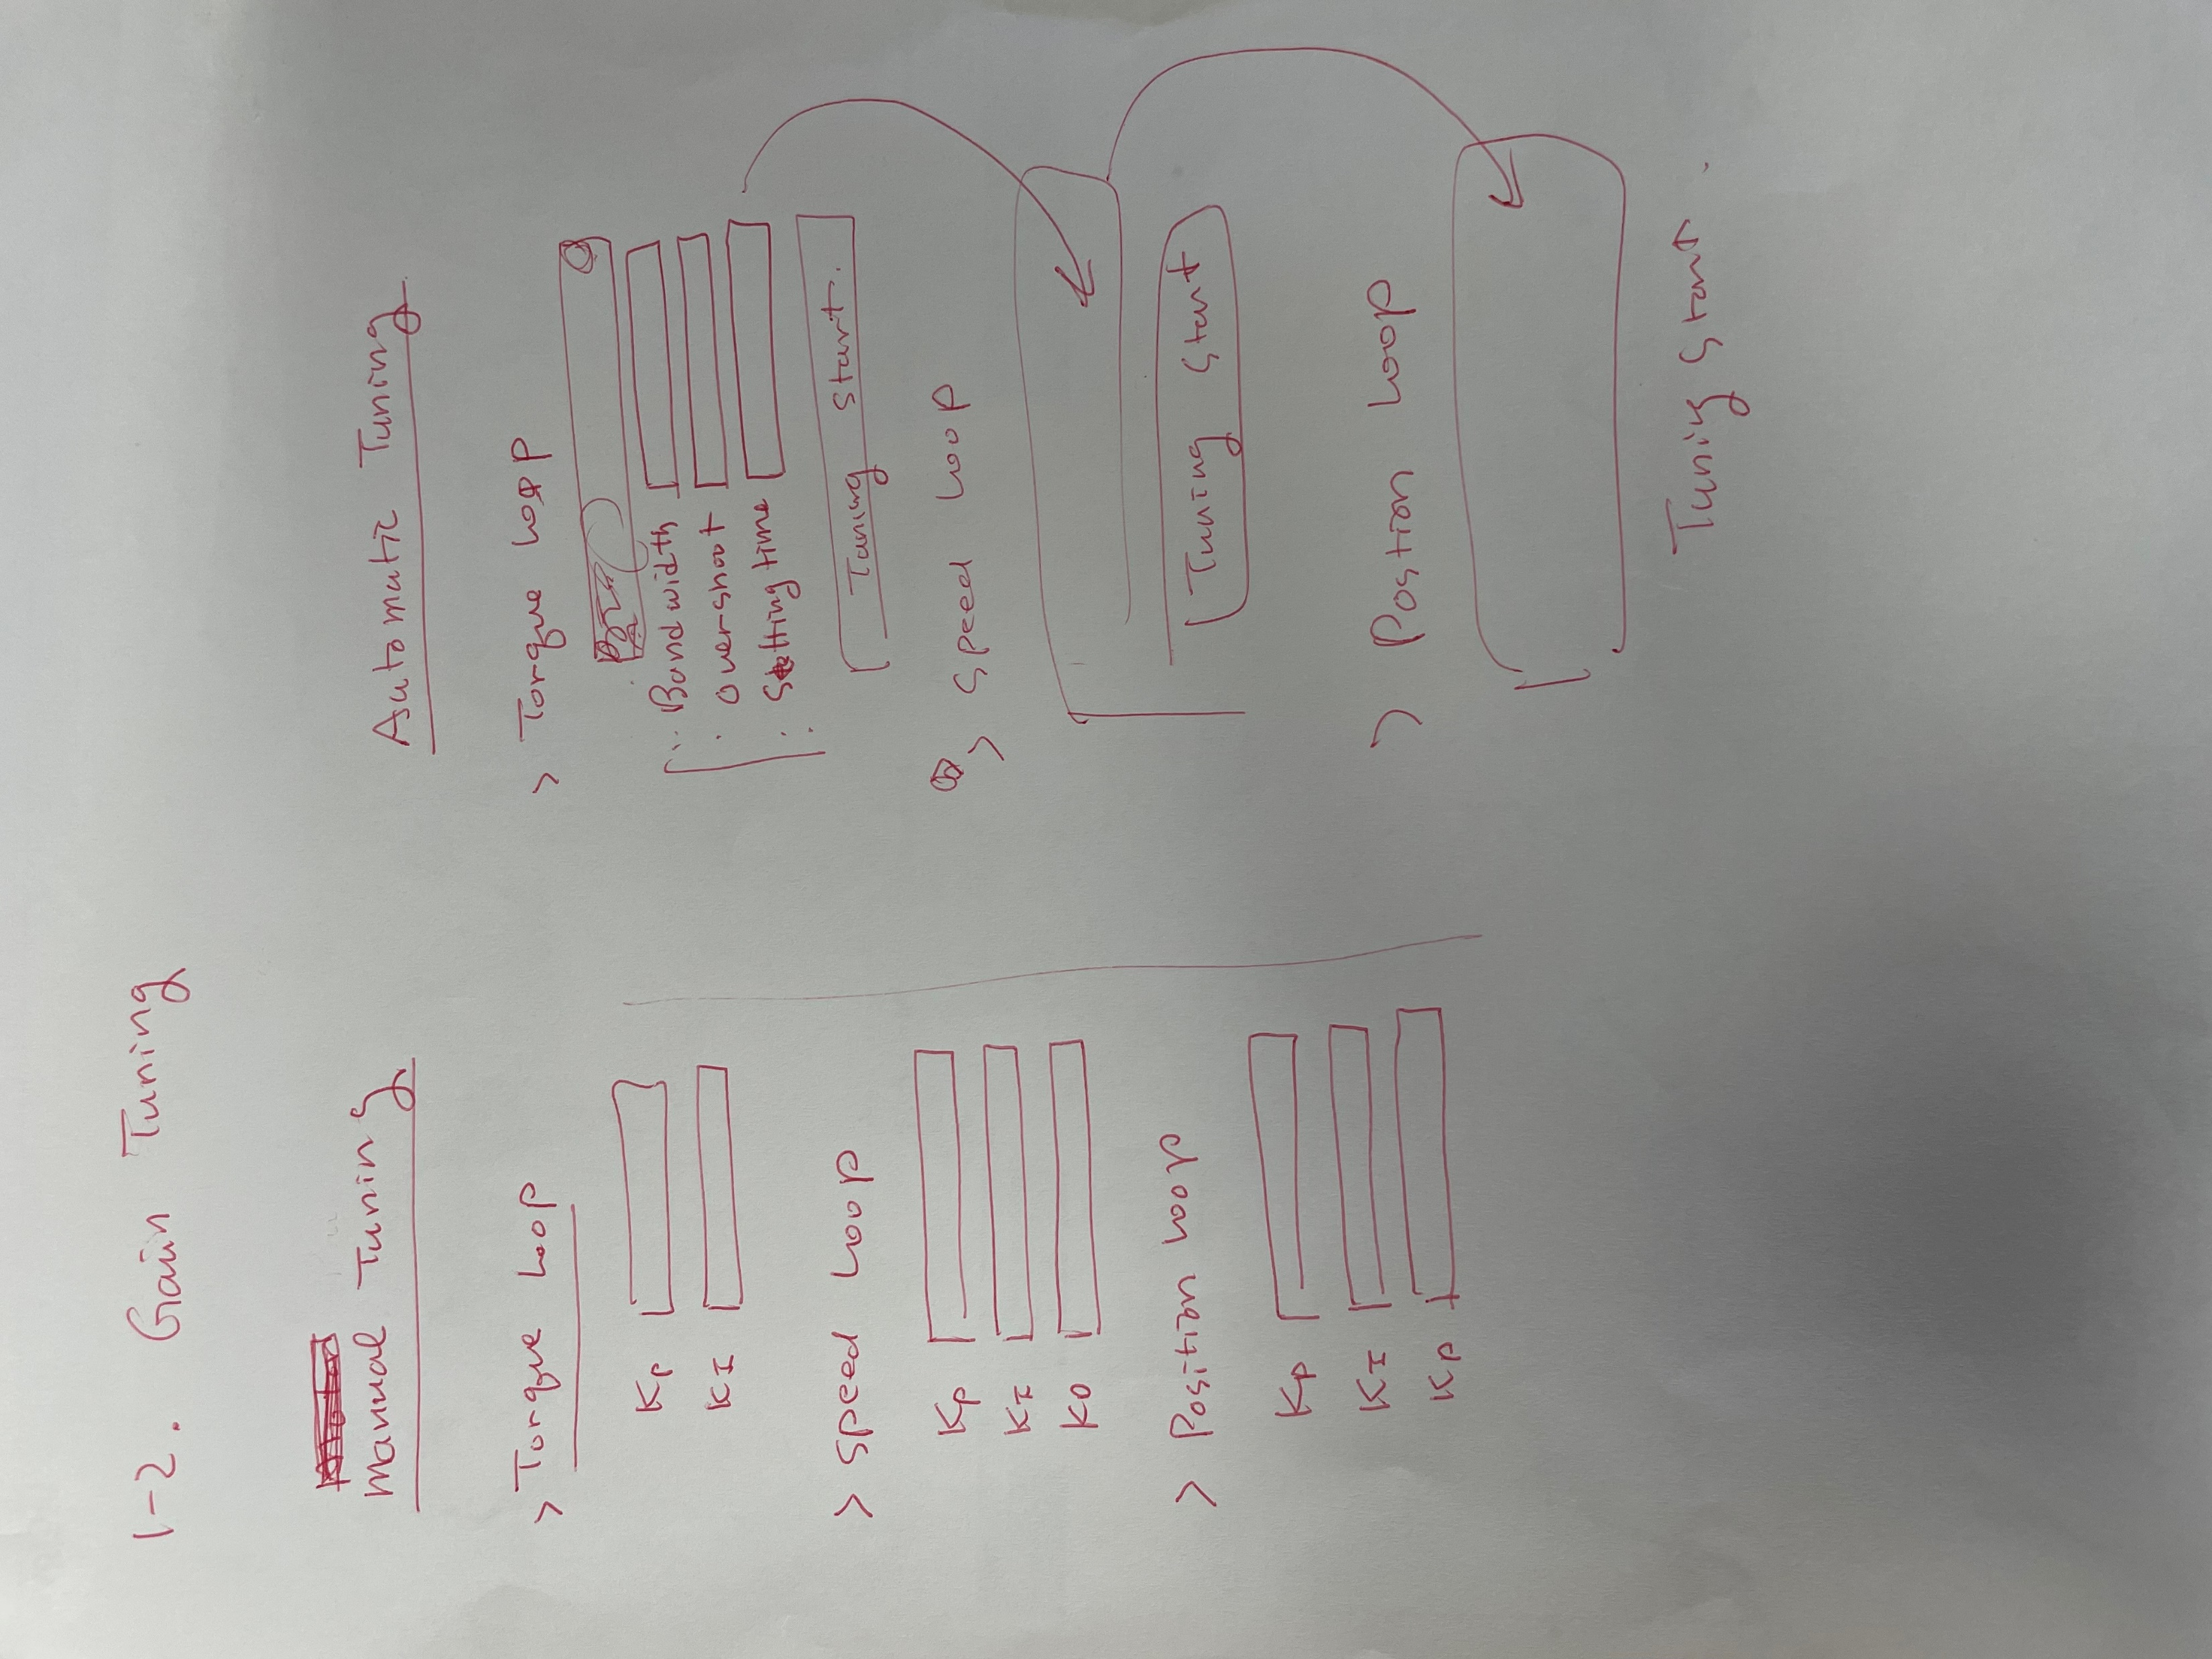 1-2. Gain Tuning
Manual Tuning
> Torque Loop
KP
KI
> Speed Loop
KP
KI
KD
> Position Loop
KP
KI
KP
Automatic Tuning
> Torque Loop
: Bandwidth
: Overshoot
: Settingtime
Tuning Start.
> Speed Loop
Tuning Start
> Postion Loop
Tuniy Start.